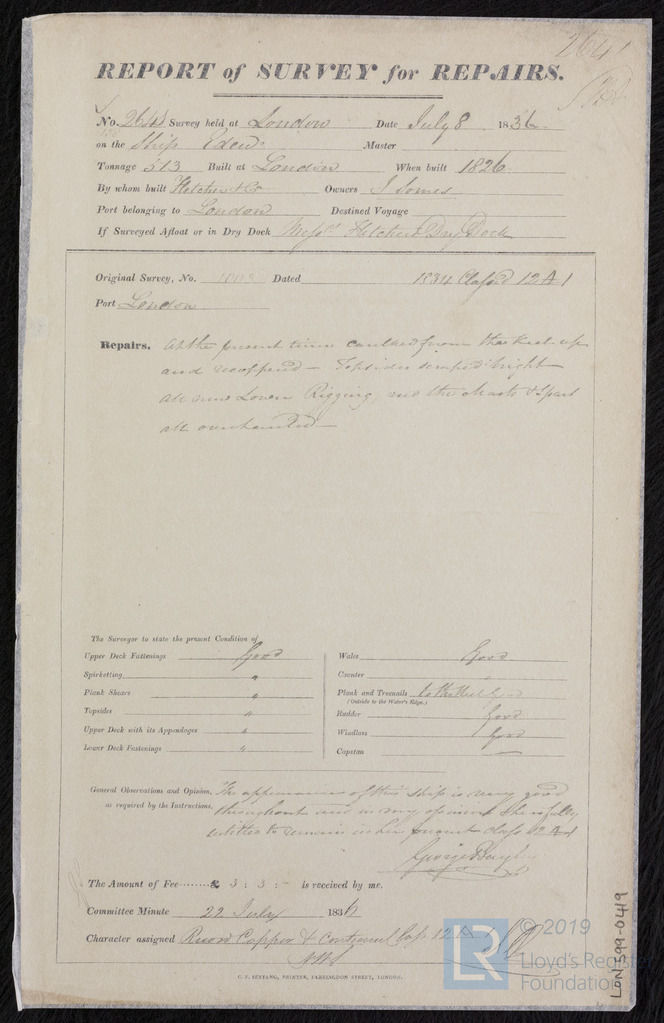 2641
REPORT of SURVEY for REPAIRS.
No. 2641 Survey held at London Date July 8 1836
on the Ship Eden Master
Tonnage 513 Built at London When built 1826
By whom built Fletcher & Co Owners J Somes
Port belonging to London Destined Voyage
If Surveyed Afloat or in Dry Dock Messrs Fletchers Dry Dock
Original Survey, No. 1003 Dated 1834 Classed 12 A 1
Port London
Repairs. At the present time caulked from the Keel up
and recoppered - Topsides scraped bright
all new Lower Rigging, and the Masts & Spars
all overhauled
The Surveyor to state the present Condition of
Upper Deck Fastenings Good
Spirketting "
Plank Shears "
Topsides "
Upper Deck with its Appendages "
Lower Deck Fastenings "
Wales Good
Counter "
Plank and Treenails to the Keel Good
(Outside to the Water's Edge.)
Rudder Good
Windlass Good
Capstan —
General Observations and Opinion, The appearance of this Ship is very good
as required by the Instructions, throughout and in my opinion she is fully
entitled to remain in her present class 12 A 1
George Bayley
The Amount of Fee ...... £ 3 : 3 : - is received by me.
Committee Minute 22 July 1836
Character assigned Record Copper & Continued Class 12 A
C. F. SEYFANG, PRINTER, FARRINGDON STREET, LONDON.
LR
© 2019
Lloyd's Register
Foundation
LON 599-0419